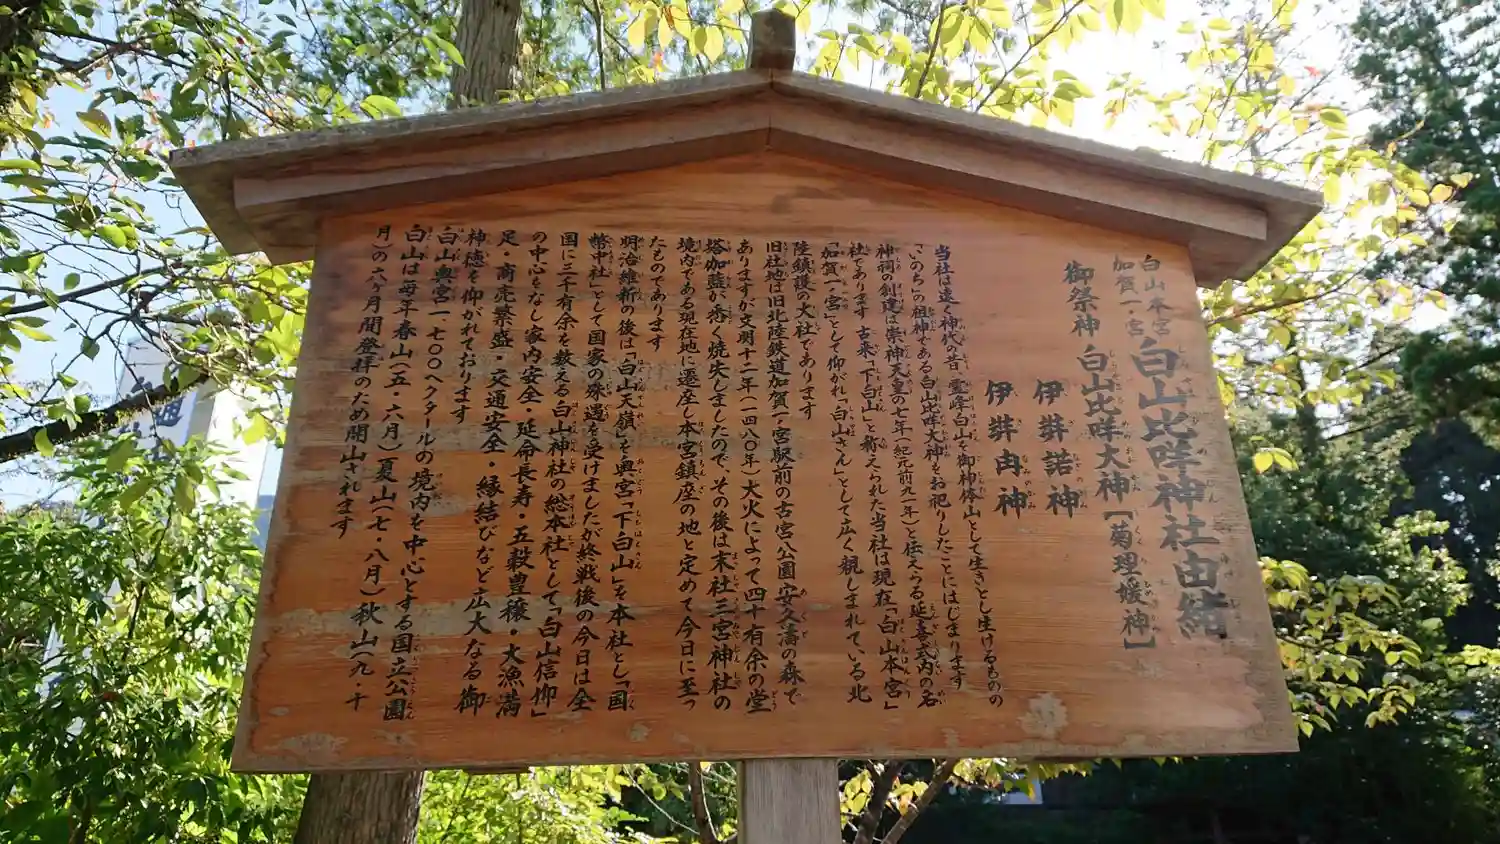 白山本宮
加賀一ノ宮
白山比咩神社由緒
御祭神 白山比咩大神［菊理媛神］
伊弉諾神
伊弉冉神
当社は遠く神代の昔、霊峰白山を御神体山として生きとし生けるものの
"いのち"の祖神である白山比咩大神をお祀りしたことにはじまります
神祠の創建は崇神天皇の七年（紀元前九一年）と伝えらる延喜式内の名
社であります 古来「下白山」と称えられた当社は現在「白山本宮」
「加賀一ノ宮」として仰がれ「白山さん」として広く親しまれている北
陸鎮護の大社であります
旧社地は旧北陸鉄道加賀一ノ宮駅前の古宮公園安久濤の森で
ありますが文明十二年（一四八〇年）大火によって四十有余の堂
塔伽藍が悉く焼失しましたので、その後は末社三宮神社の
境内である現在地に遷座し本宮鎮座の地と定めて今日に至っ
たものであります
明治維新の後は「白山天嶺」を奥宮「下白山」を本社とし「国
幣中社」として国家の殊遇を受けましたが終戦後の今日は全
国に三千有余を数える白山神社の総本社として「白山信仰」
の中心をなし家内安全・延命長寿・五穀豊穣・大漁満
足・商売繁盛・交通安全・縁結びなど広大なる御
神徳を仰がれております
白山奥宮一七〇〇ヘクタールの境内を中心とする国立公園
白山は毎年春山（五・六月）夏山（七・八月）秋山（九・十
月）の六ヶ月間登拝のため開山されます